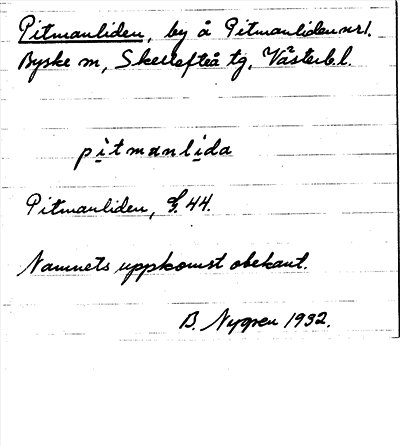 Pitmanliden, by å Pitmanliden nr 1.
Byske sn, Skellefteå tg, Västerb. l.
pìtmanlìda
Pitmanliden, G. 44.
Namnets uppkomst obekant.
B. Nygren 1932.